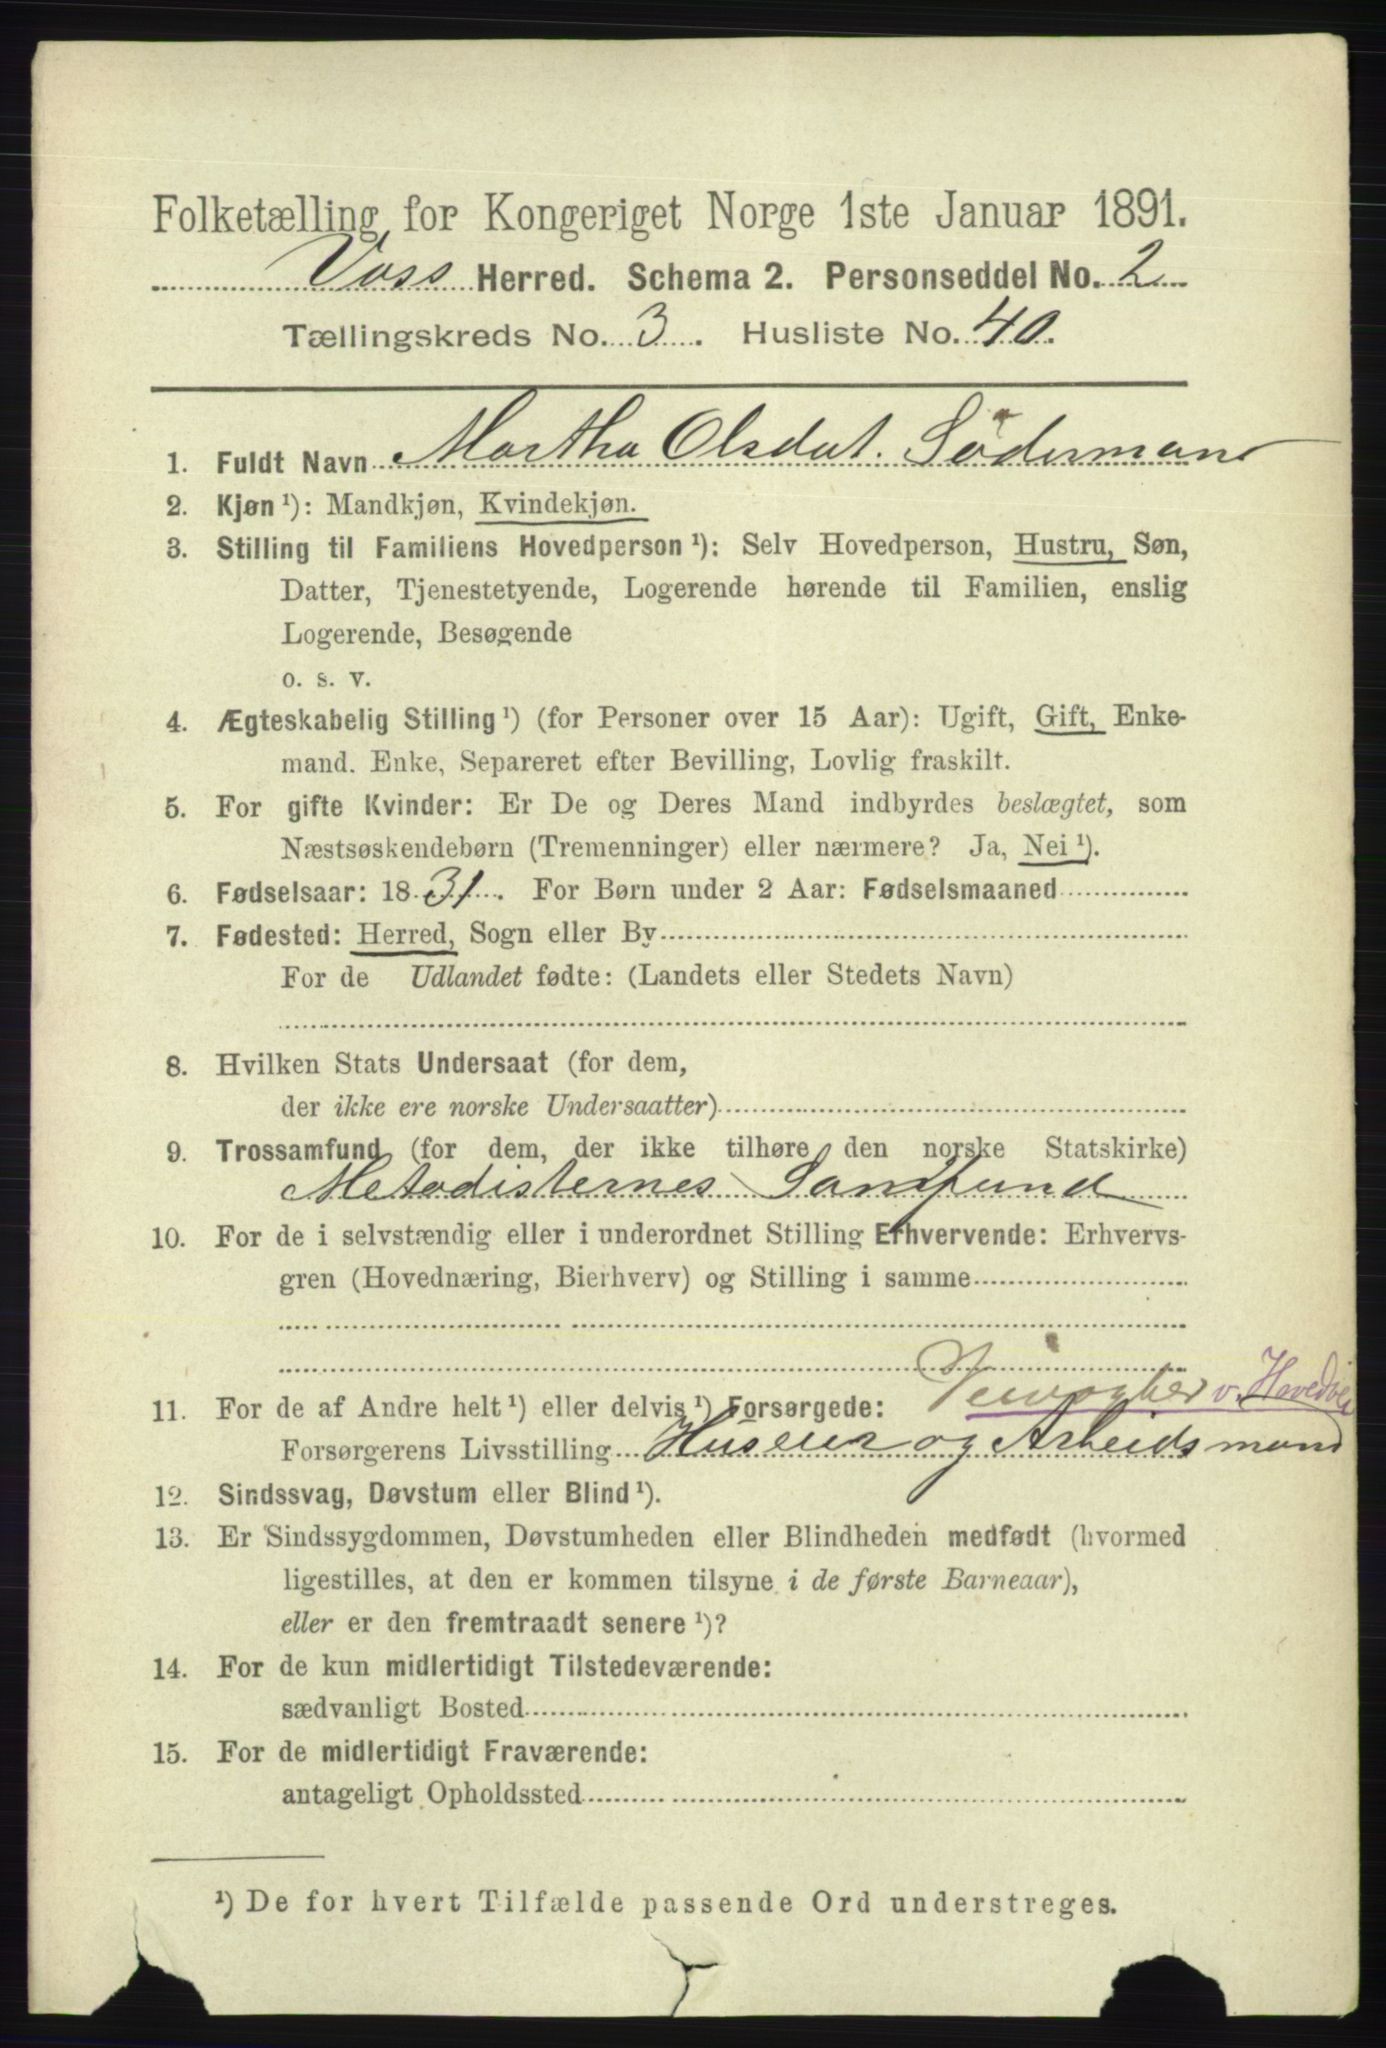 Folketælling for Kongeriget Norge 1ste Januar 1891.
Voss Herred. Schema 2. Personseddel No. 2
Tællingskreds No. 3. Husliste No. 40.
1. Fuldt Navn Martha Olsdat. Södermand
2. Kjøn ¹): Mandkjøn, Kvindekjøn.
3. Stilling til Familiens Hovedperson ¹): Selv Hovedperson, Hustru, Søn,
Datter, Tjenestetyende, Logerende hørende til Familien, enslig
Logerende, Besøgende
o. s. v.
4. Ægteskabelig Stilling ¹) (for Personer over 15 Aar): Ugift, Gift, Enke-
mand. Enke, Separeret efter Bevilling, Lovlig fraskilt.
5. For gifte Kvinder: Er De og Deres Mand indbyrdes beslægtet, som
Næstsøskendebørn (Tremenninger) eller nærmere? Ja, Nei ¹).
6. Fødselsaar: 1831. For Børn under 2 Aar: Fødselsmaaned
7. Fødested: Herred, Sogn eller By
For de Udlandet fødte: (Landets eller Stedets Navn)
8. Hvilken Stats Undersaat (for dem,
der ikke ere norske Undersaatter)
9. Trossamfund (for dem, der ikke tilhøre den norske Statskirke)
Metodisternes Samfund
10. For de i selvstændig eller i underordnet Stilling Erhvervende: Erhvervs-
gren (Hovednæring, Bierhverv) og Stilling i samme
v. Hovedvei
11. For de af Andre helt ¹) eller delvis ¹) Forsørgede:
Forsørgerens Livsstilling Huseier og Arbeidsmand
12. Sindssvag, Døvstum eller Blind ¹).
13. Er Sindssygdommen, Døvstumheden eller Blindheden medfødt (hvormed
ligestilles, at den er kommen tilsyne i de første Barneaar),
eller er den fremtraadt senere ¹)?
14. For de kun midlertidigt Tilstedeværende:
sædvanligt Bosted
15. For de midlertidigt Fraværende:
antageligt Opholdssted
¹) De for hvert Tilfælde passende Ord understreges.